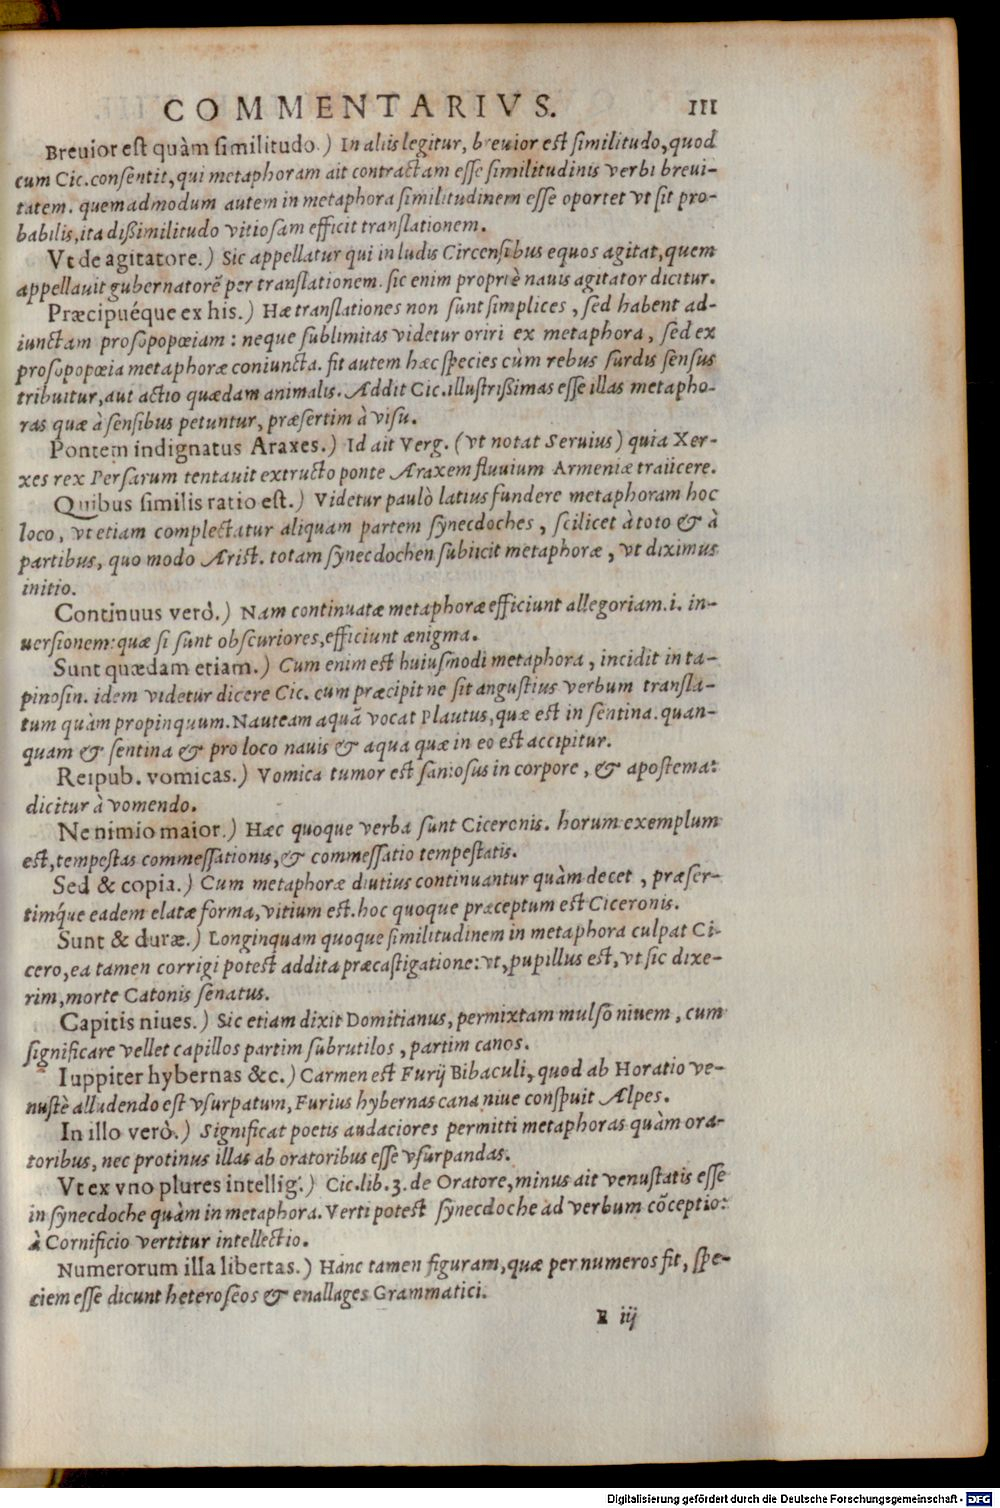 COMMENTARIVS. 111
Breuior est quàm similitudo.) In aliis legitur, breuior est similitudo, quod
cum Cic. consentit, qui metaphoram ait contractam esse similitudinis verbi breui-
tatem. quemadmodum autem in metaphora similitudinem esse oportet vt sit pro-
babilis, ita dißimilitudo vitiosam efficit translationem.
Vt de agitatore.) Sic appellatur qui in ludis Circensibus equos agitat, quem
appellauit gubernatorē per translationem. sic enim propriè nauis agitator dicitur.
Præcipuéque ex his.) Hæ translationes non sunt simplices, sed habent ad-
iunctam prosopopœiam: neque sublimitas videtur oriri ex metaphora, sed ex
prosopopœia metaphoræ coniuncta. fit autem hæc species cùm rebus surdis sensus
tribuitur, aut actio quædam animalis. Addit Cic. illustrißimas esse illas metapho-
ras quæ à sensibus petuntur, præsertim à visu.
Pontem indignatus Araxes.) Id ait Verg. (vt notat Seruius) quia Xer-
xes rex Persarum tentauit extructo ponte Araxem fluuium Armeniæ traiicere.
Quibus similis ratio est.) Videtur paulò latius fundere metaphoram hoc
loco, vt etiam complectatur aliquam partem synecdoches, scilicet à toto & à
partibus, quo modo Arist. totam synecdochen subiicit metaphoræ, vt diximus
initio.
Continuus verò.) Nam continuatæ metaphoræ efficiunt allegoriam .i. in-
uersionem: quæ si sunt obscuriores, efficiunt ænigma.
Sunt quædam etiam.) Cum enim est huiusmodi metaphora, incidit in ta-
pinosin. idem videtur dicere Cic. cum præcipit ne sit angustius verbum transla-
tum quàm propinquum. Nauteam aquā vocat Plautus, quæ est in sentina. quan-
quam & sentina & pro loco nauis & aqua quæ in eo est accipitur.
Reipub. vomicas.) Vomica tumor est saniosus in corpore, & apostema:
dicitur à vomendo.
Ne nimio maior.) Hæc quoque verba sunt Ciceronis. horum exemplum
est, tempestas commessationis, & commessatio tempestatis.
Sed & copia.) Cum metaphoræ diutius continuantur quàm decet, præser-
timq́ue eadem elatæ forma, vitium est. hoc quoque præceptum est Ciceronis.
Sunt & duræ.) Longinquam quoque similitudinem in metaphora culpat Ci-
cero, ea tamen corrigi potest addita præcastigatione: vt, pupillus est, vt sic dixe-
rim, morte Catonis senatus.
Capitis niues.) Sic etiam dixit Domitianus, permixtam mulsō niuem, cum
significare vellet capillos partim subrutilos, partim canos.
Iuppiter hybernas &c.) Carmen est Furij Bibaculi, quod ab Horatio ve-
nustè alludendo est vsurpatum, Furius hybernas cana niue conspuit Alpes.
In illo verò.) Significat poetis audaciores permitti metaphoras quàm ora-
toribus, nec protinus illas ab oratoribus esse vsurpandas.
Vt ex vno plures intellig.) Cic. lib. 3. de Oratore, minus ait venustatis esse
in synecdoche quàm in metaphora. Verti potest synecdoche ad verbum cōceptio:
à Cornificio vertitur intellectio.
Numerorum illa libertas.) Hanc tamen figuram, quæ per numeros fit, spe-
ciem esse dicunt heteroseos & enallages Grammatici.
iij
Digitalisierung gefördert durch die Deutsche Forschungsgemeinschaft - DFG